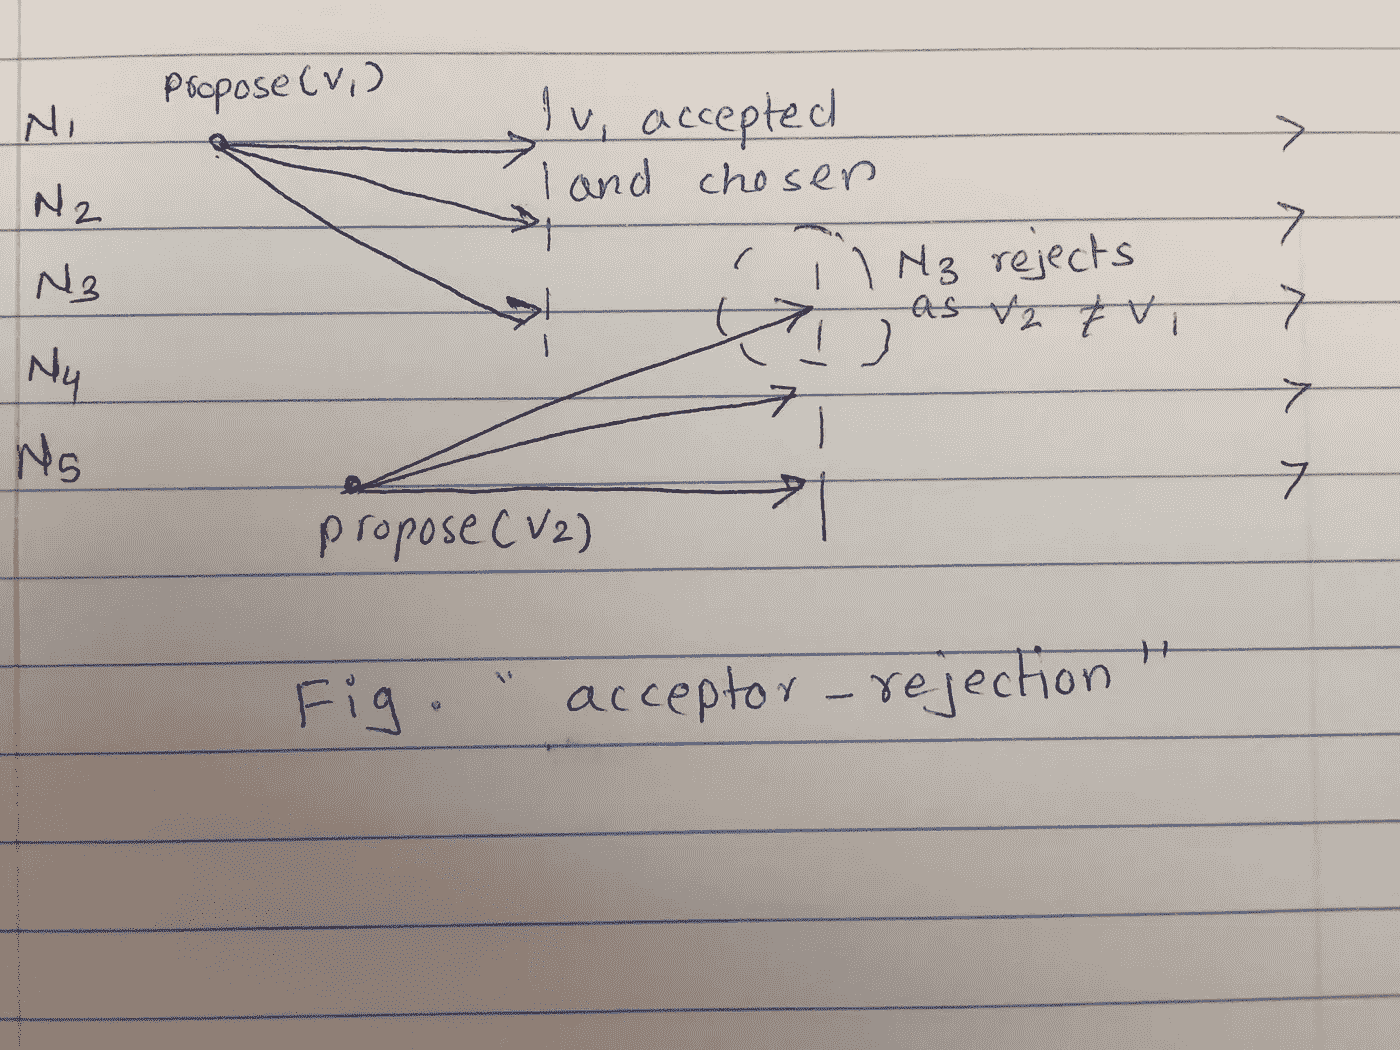 propose(v₁)
N₁
v₁ accepted
and chosen
N₂
N₃
N₃ rejects
as v₂ ≠ v₁
N₄
N₅
propose(v₂)
Fig. "acceptor-rejection"